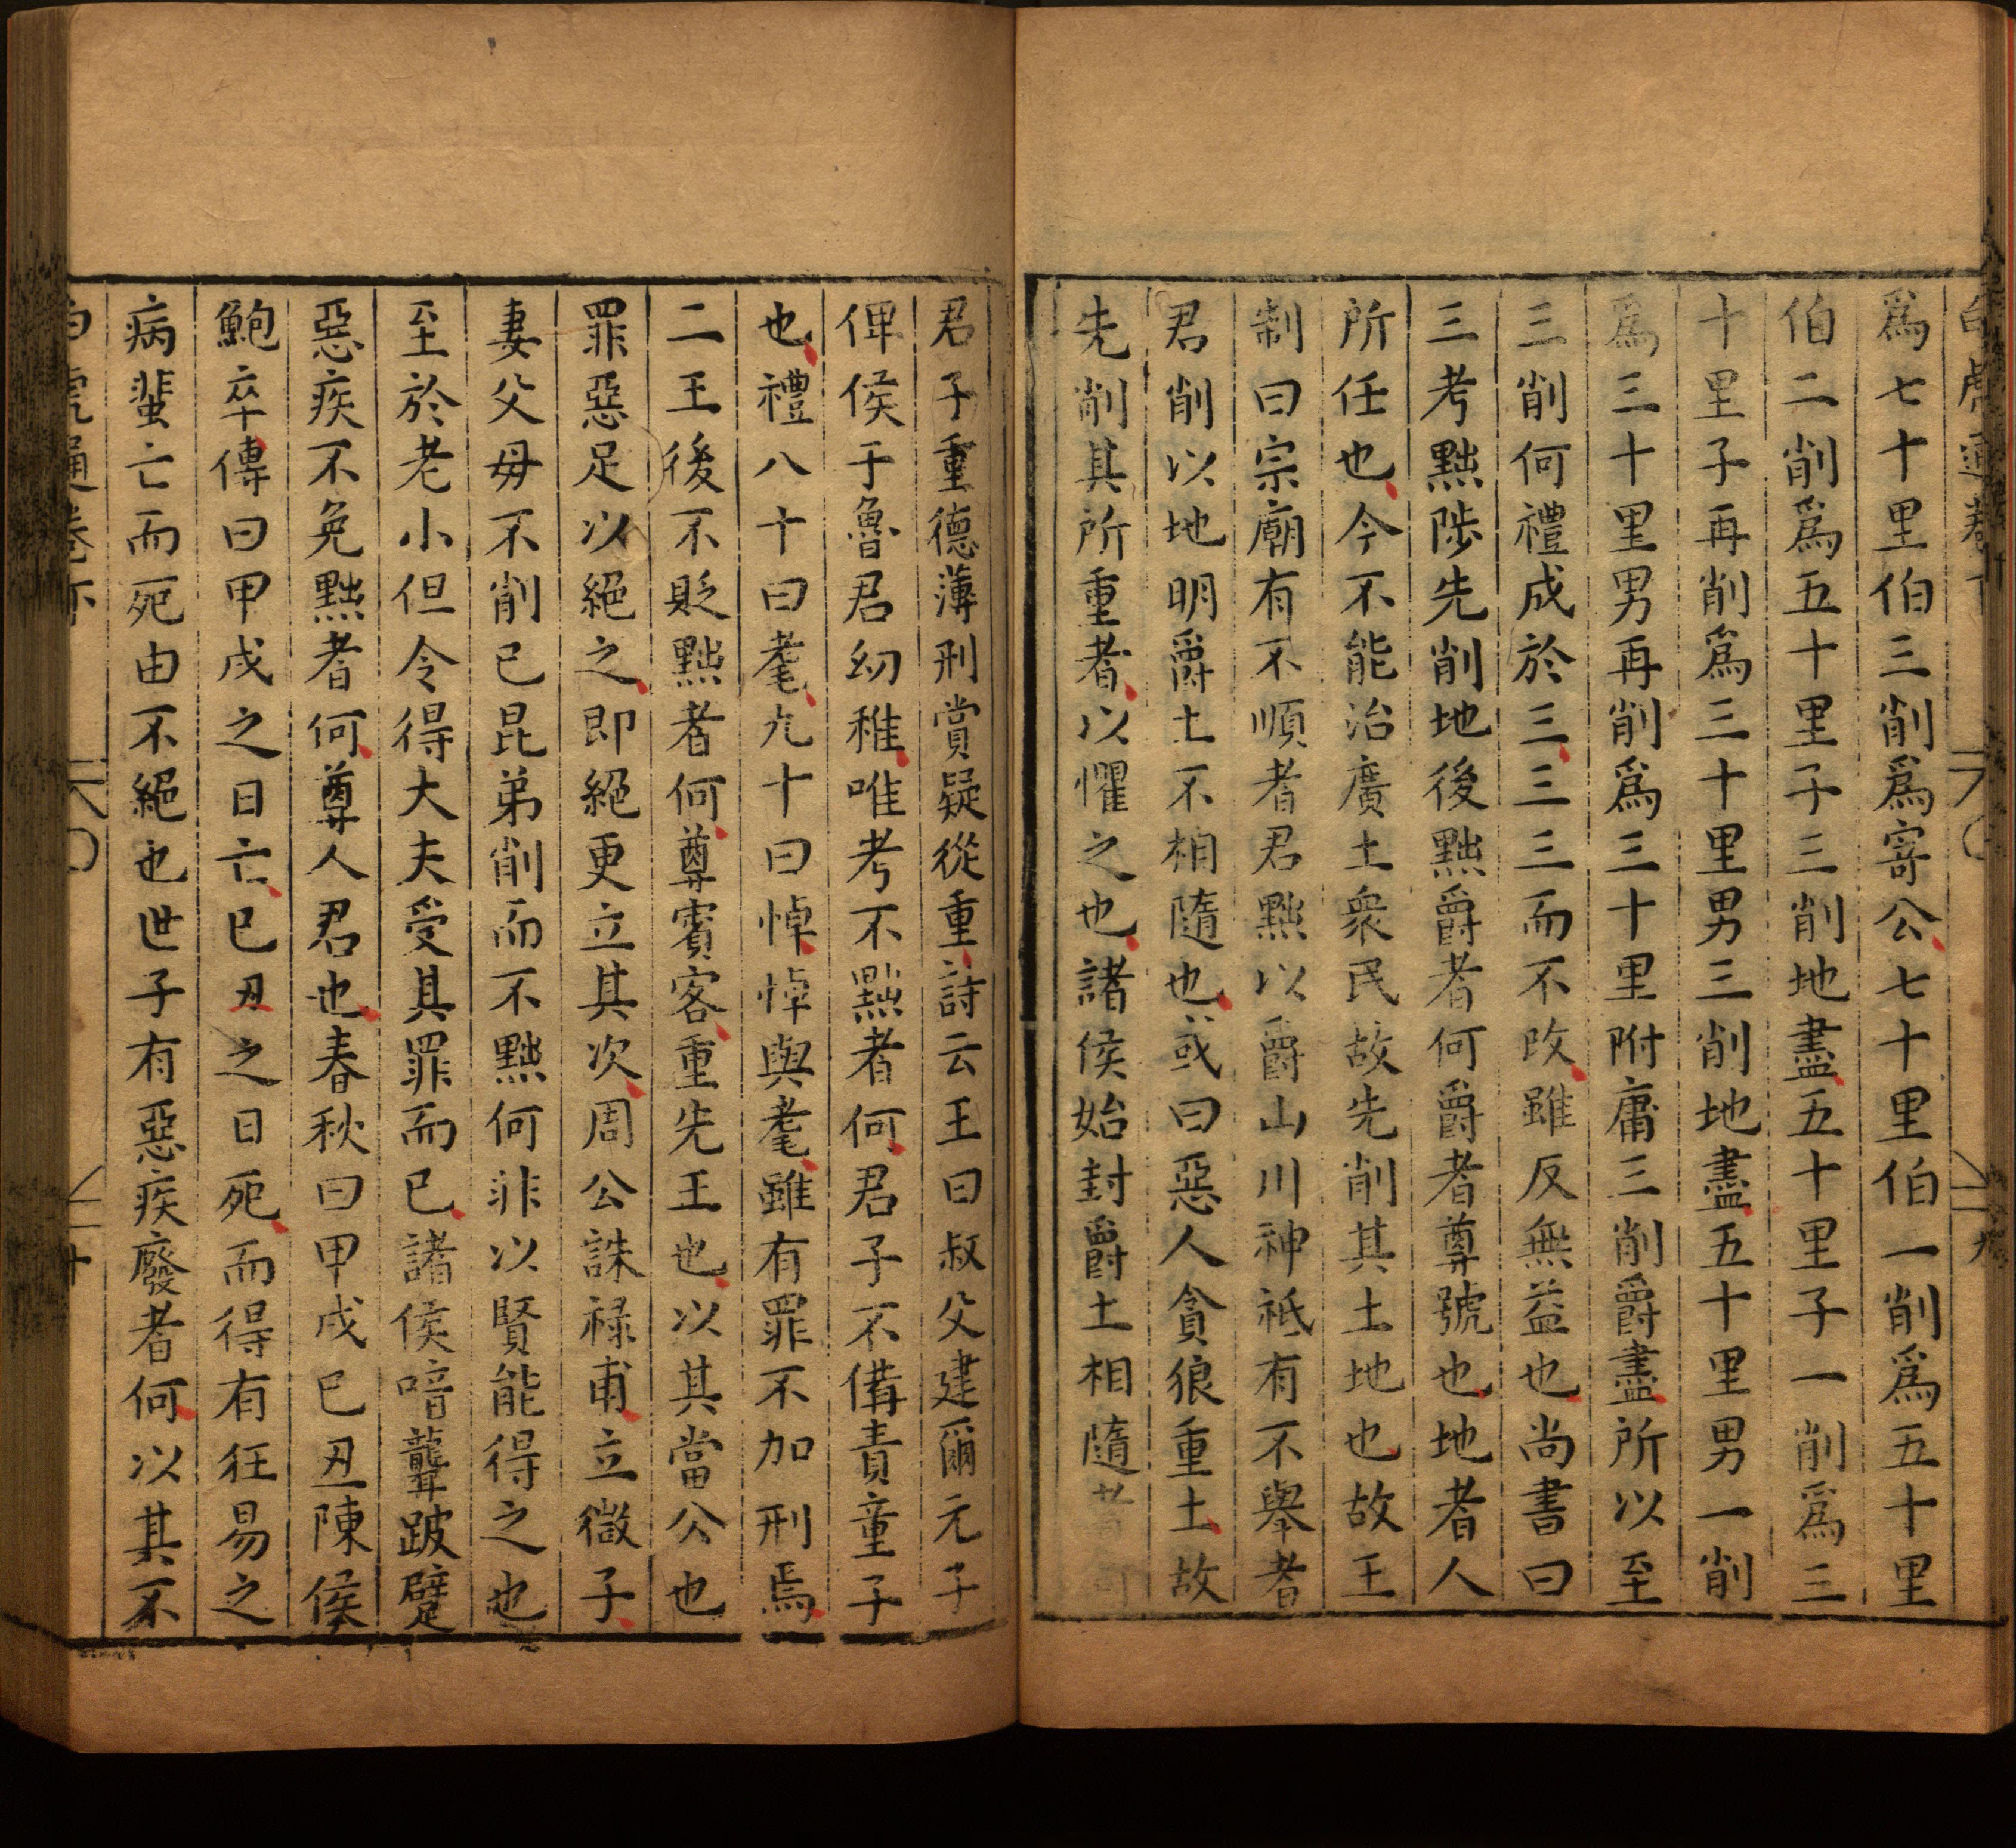 爲七十里伯三削爲寄公七十里伯一削爲五十里
伯二削爲五十里子三削地盡五十里子一削爲三
十里子再削爲三十里男三削地盡五十里男一削
爲三十里男再削爲三十里附庸三削爵盡所以至
三削何禮成於三三三而不改雖反無益也尚書曰
三考黜陟先削地後黜爵者何爵者尊號也地者人
所任也今不能治廣土衆民故先削其土地也故王
制曰宗廟有不順者君黜以爵山川神祗有不舉者
君削以地明爵土不相隨也或曰惡人貪狼重土故
先削其所重者以懼之也諸侯始封爵土相隨者何
君子重德薄刑賞疑從重詩云王曰叔父建爾元子
俾侯于魯君幼稚唯考不黜者何君子不備責童子
也禮八十曰耄九十曰悼悼與耄雖有罪不加刑焉
二王後不貶黜者何尊賓客重先王也以其當公也
罪惡足以絕之即絕更立其次周公誅祿甫立微子
妻父毋不削已昆弟削而不黜何非以賢能得之也
至於老小但令得大夫受其罪而已諸侯喑聾跛躄
惡疾不免黜者何尊人君也春秋曰甲戌已丑陳侯
鮑卒傳曰甲戌之日亡已丑之日死而得有狂易之
病蜚亡而死由不絕也世子有惡疾廢者何以其不
白虎通卷下